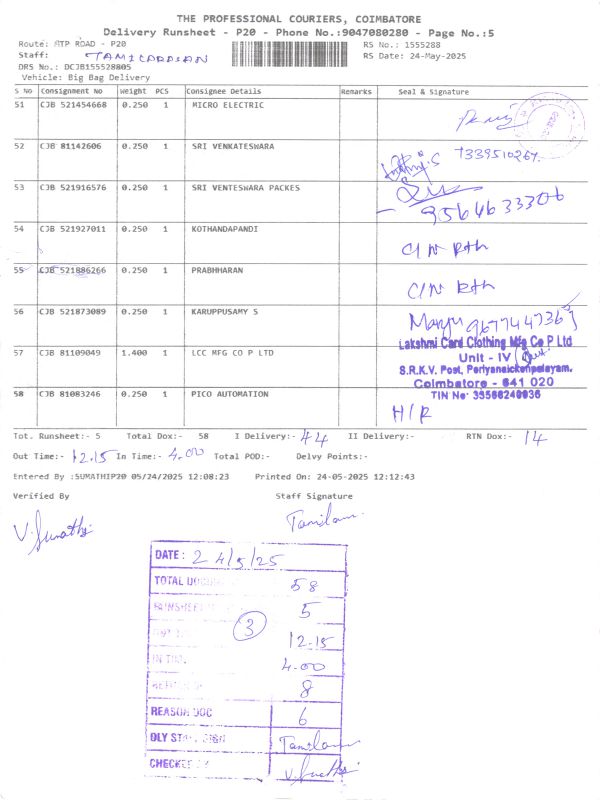 THE PROFESSIONAL COURIERS, COIMBATORE
Delivery Runsheet - P20 - Phone No.:9047080280 - Page No.:5
Route: MTP ROAD - P20
RS No.: 1555288
Staff: TAMILARASAN
RS Date: 24-May-2025
DRS No.: DCJB155528805
Vehicle: Big Bag Delivery
S No Consignment No Weight PCS Consignee Details Remarks Seal & Signature
51 CJB 521454668 0.250 1 MICRO ELECTRIC
52 CJB 81142606 0.250 1 SRI VENKATESWARA 7339510267.
53 CJB 521916576 0.250 1 SRI VENTESWARA PACKES 9564633306
54 CJB 521927011 0.250 1 KOTHANDAPANDI C/N Rth
55 CJB 521886266 0.250 1 PRABHHARAN C/N Rth
56 CJB 521873089 0.250 1 KARUPPUSAMY S Manju 9677447367
57 CJB 81109049 1.400 1 LCC MFG CO P LTD
Lakshmi Card Clothing Mfg Co P Ltd
Unit - IV
S.R.K.V. Post, Periyanaickenpalayam,
Coimbatore - 641 020
TIN No
58 CJB 81083246 0.250 1 PICO AUTOMATION H/R
Tot. Runsheet:- 5 Total Dox:- 58 I Delivery:- 44 II Delivery:- RTN Dox:- 14
Out Time:- 12.15 In Time:- 4.00 Total POD:- Delvy Points:-
Entered By :SUMATHIP20 05/24/2025 12:08:23 Printed On: 24-05-2025 12:12:43
Verified By Staff Signature
V. Sumathi Tamilan
DATE: 24/5/25
TOTAL 58
5
3
12.15
IN TIME 4.00
8
REASON DOC 6
DLY STAFF SIGN Tamilan
CHECKED BY V. Sumathi